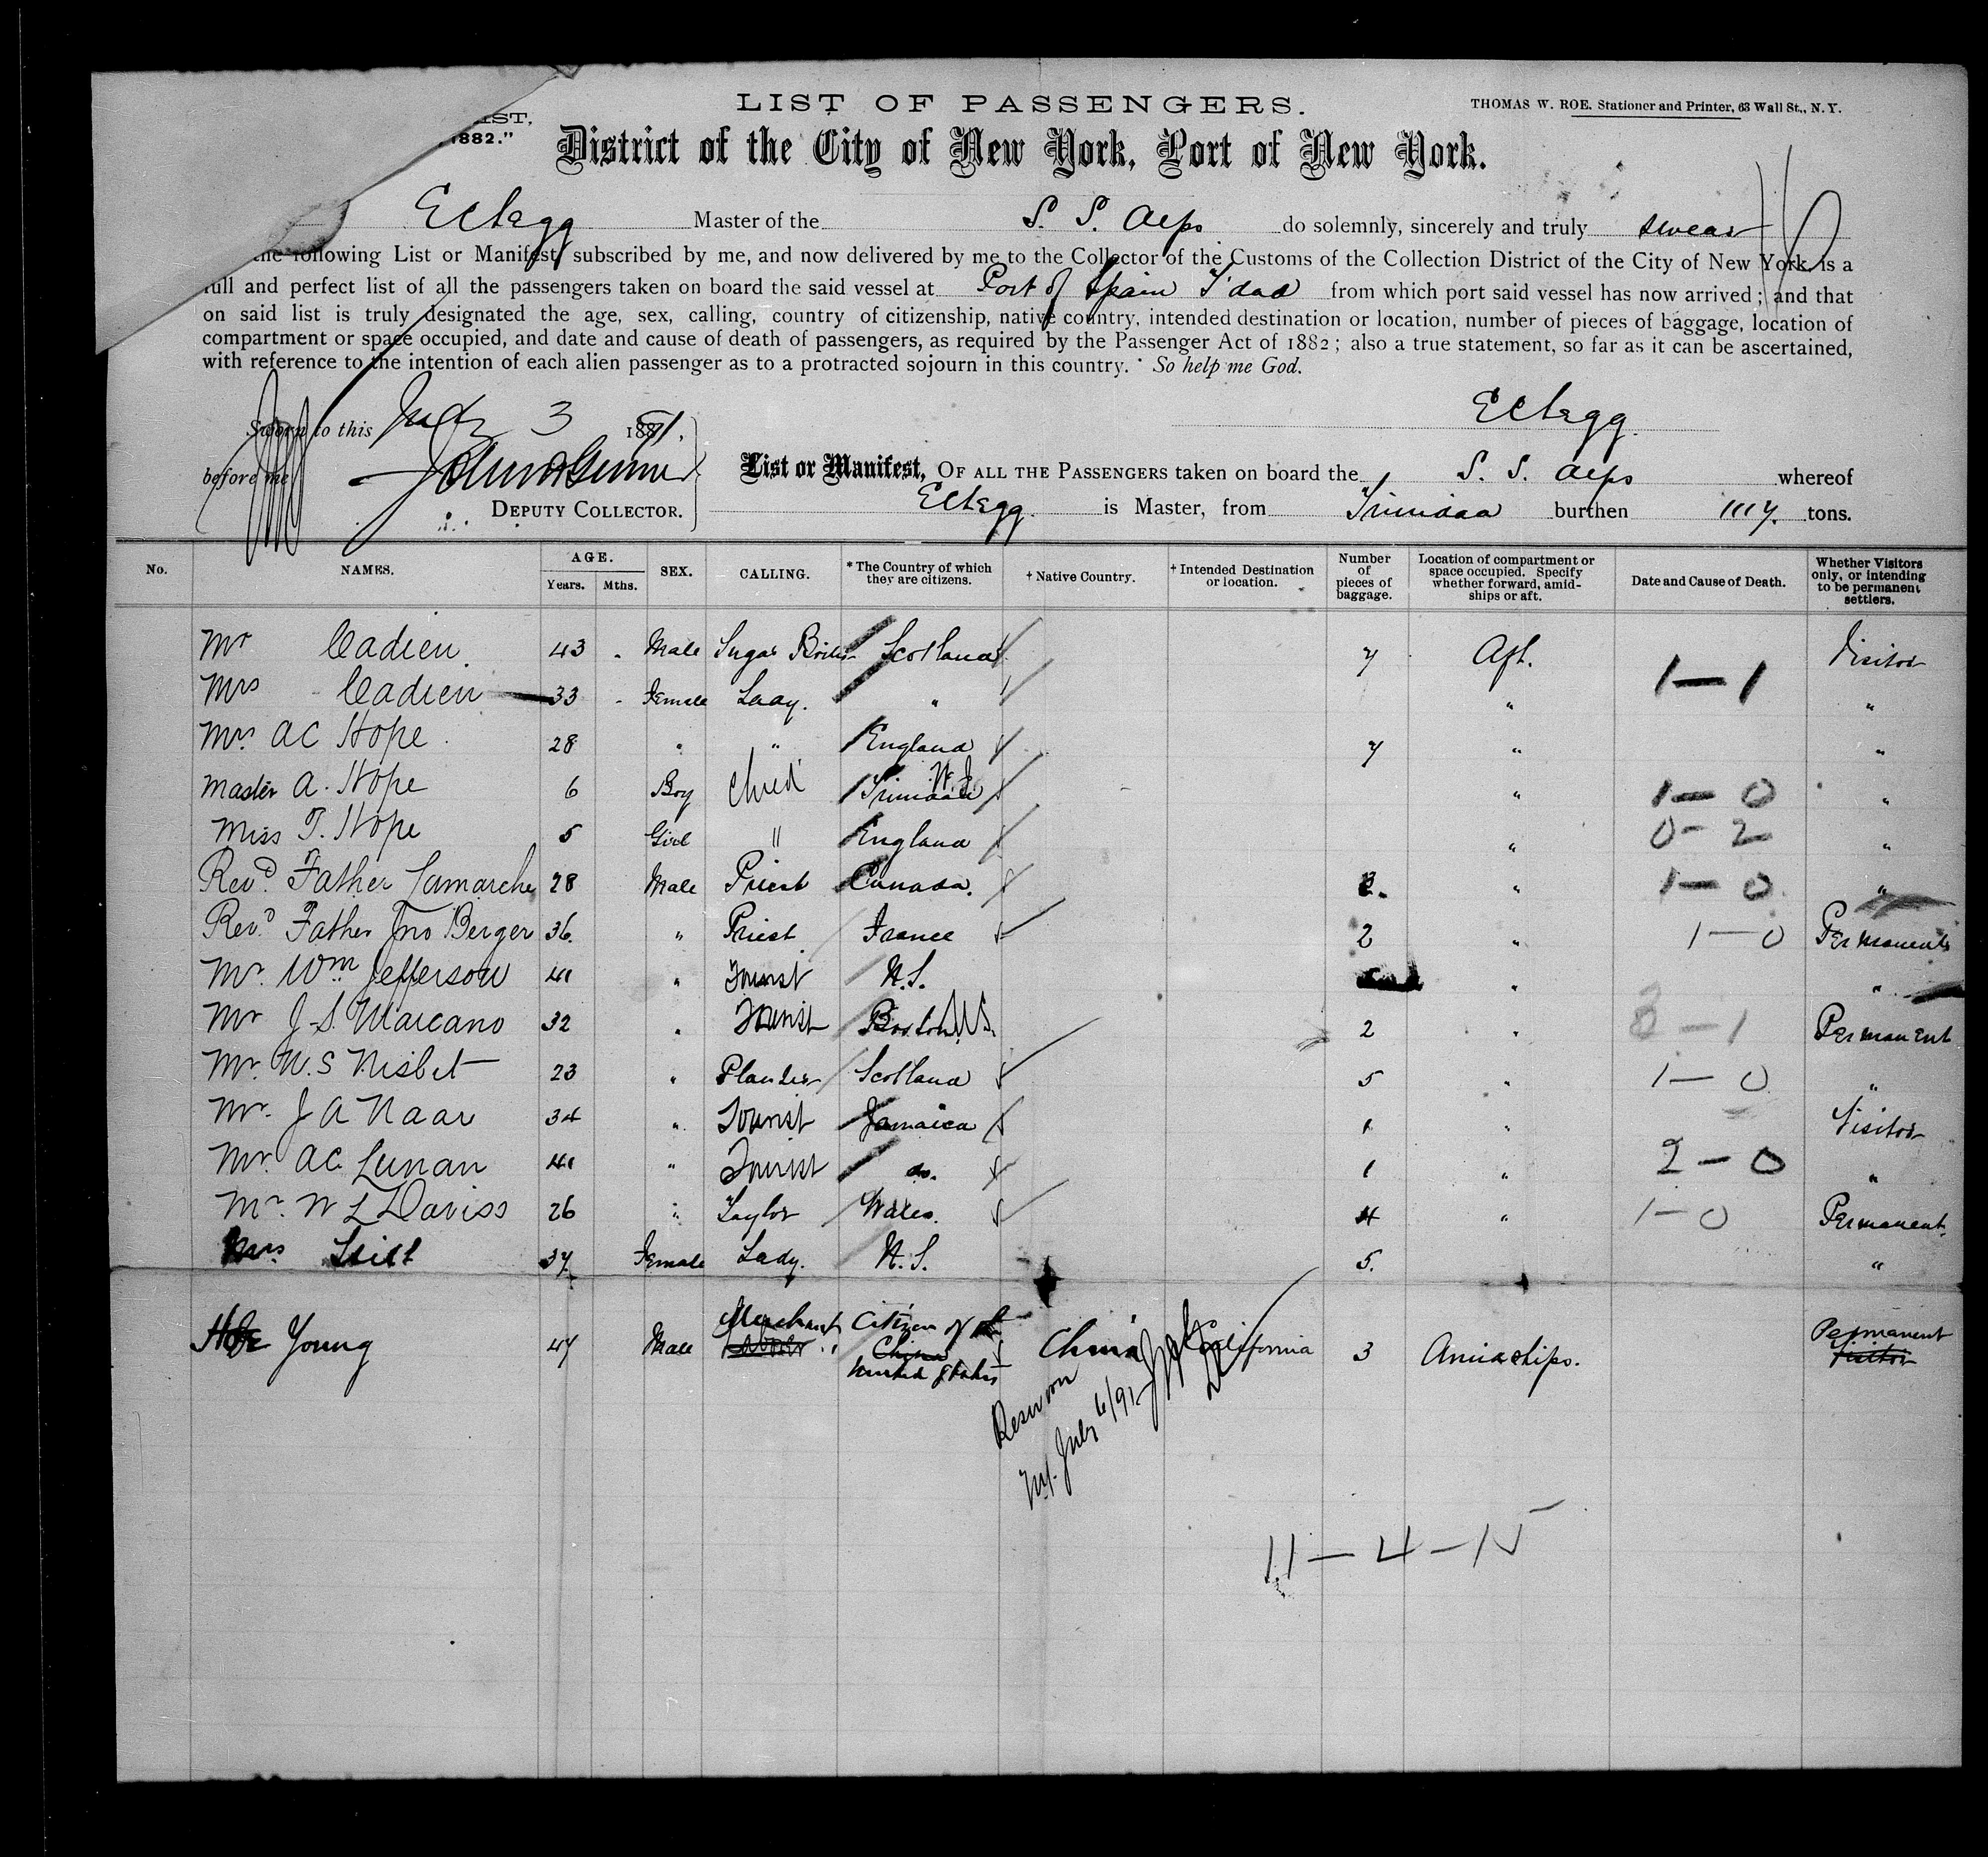 LIST OF PASSENGERS.
THOMAS W. ROE. Stationer and Printer, 63 Wall St., N.Y.
1882."
District of the City of New York, Port of New York.
E Clegg Master of the S. S. Alps do solemnly, sincerely and truly swear
the following List or Manifest, subscribed by me, and now delivered by me to the Collector of the Customs of the Collection District of the City of New York, is a
full and perfect list of all the passengers taken on board the said vessel at Port of Spain T'dad from which port said vessel has now arrived; and that
on said list is truly designated the age, sex, calling, country of citizenship, native country, intended destination or location, number of pieces of baggage, location of
compartment or space occupied, and date and cause of death of passengers, as required by the Passenger Act of 1882; also a true statement, so far as it can be ascertained,
with reference to the intention of each alien passenger as to a protracted sojourn in this country. So help me God.
E Clegg
Sworn to this July 3 1891.
before me
DEPUTY COLLECTOR.
List or Manifest, OF ALL THE PASSENGERS taken on board the S. S. Alps whereof
E Clegg is Master, from Trinidad burthen 1117. tons.
No. NAMES. AGE. Years. Mths. SEX. CALLING. * The Country of which they are citizens. † Native Country. † Intended Destination or location. Number of pieces of baggage. Location of compartment or space occupied. Specify whether forward, amidships or aft. Date and Cause of Death. Whether Visitors only, or intending to be permanent settlers.
Mr Cadien 43 Male Sugar Boiler Scotland 7 Aft. Visitor
Mrs Cadien 33 Female Lady. " " 1-1 "
Mrs. A C Hope 28 " " England 7 " "
Master A. Hope 6 Boy Child Trinidad W.I. " 1-0 "
Miss T. Hope 5 Girl " England " 0-2 "
Revd. Father Lamarche 28 Male Priest Canada. " 1-0 "
Revd. Father Jno Berger 36. " Priest France 2 " 1-0 Permanent
Mr. Wm Jefferson 41 " Tourist U.S. " "
Mr J-S. Marcano 32 " Tourist Boston U.S. 2 " 3-1 Permanent
Mr. W.S Nisbet 23 " Planter Scotland 5 " 1-0 "
Mr. J A Naar 34 " Tourist Jamaica 1 " Visitor
Mr. A C. Lunan 41 " Tourist do. 1 " 2-0 "
Mr. W L Daviss 26 " Taylor Wales. 4 " 1-0 Permanent.
Mrs 37 Female Lady. U.S. 5. "
Young 47 Male Merchant Citizen of China United States China California 3 Amidships. Permanent Visitor
July 6/91
11-4-15